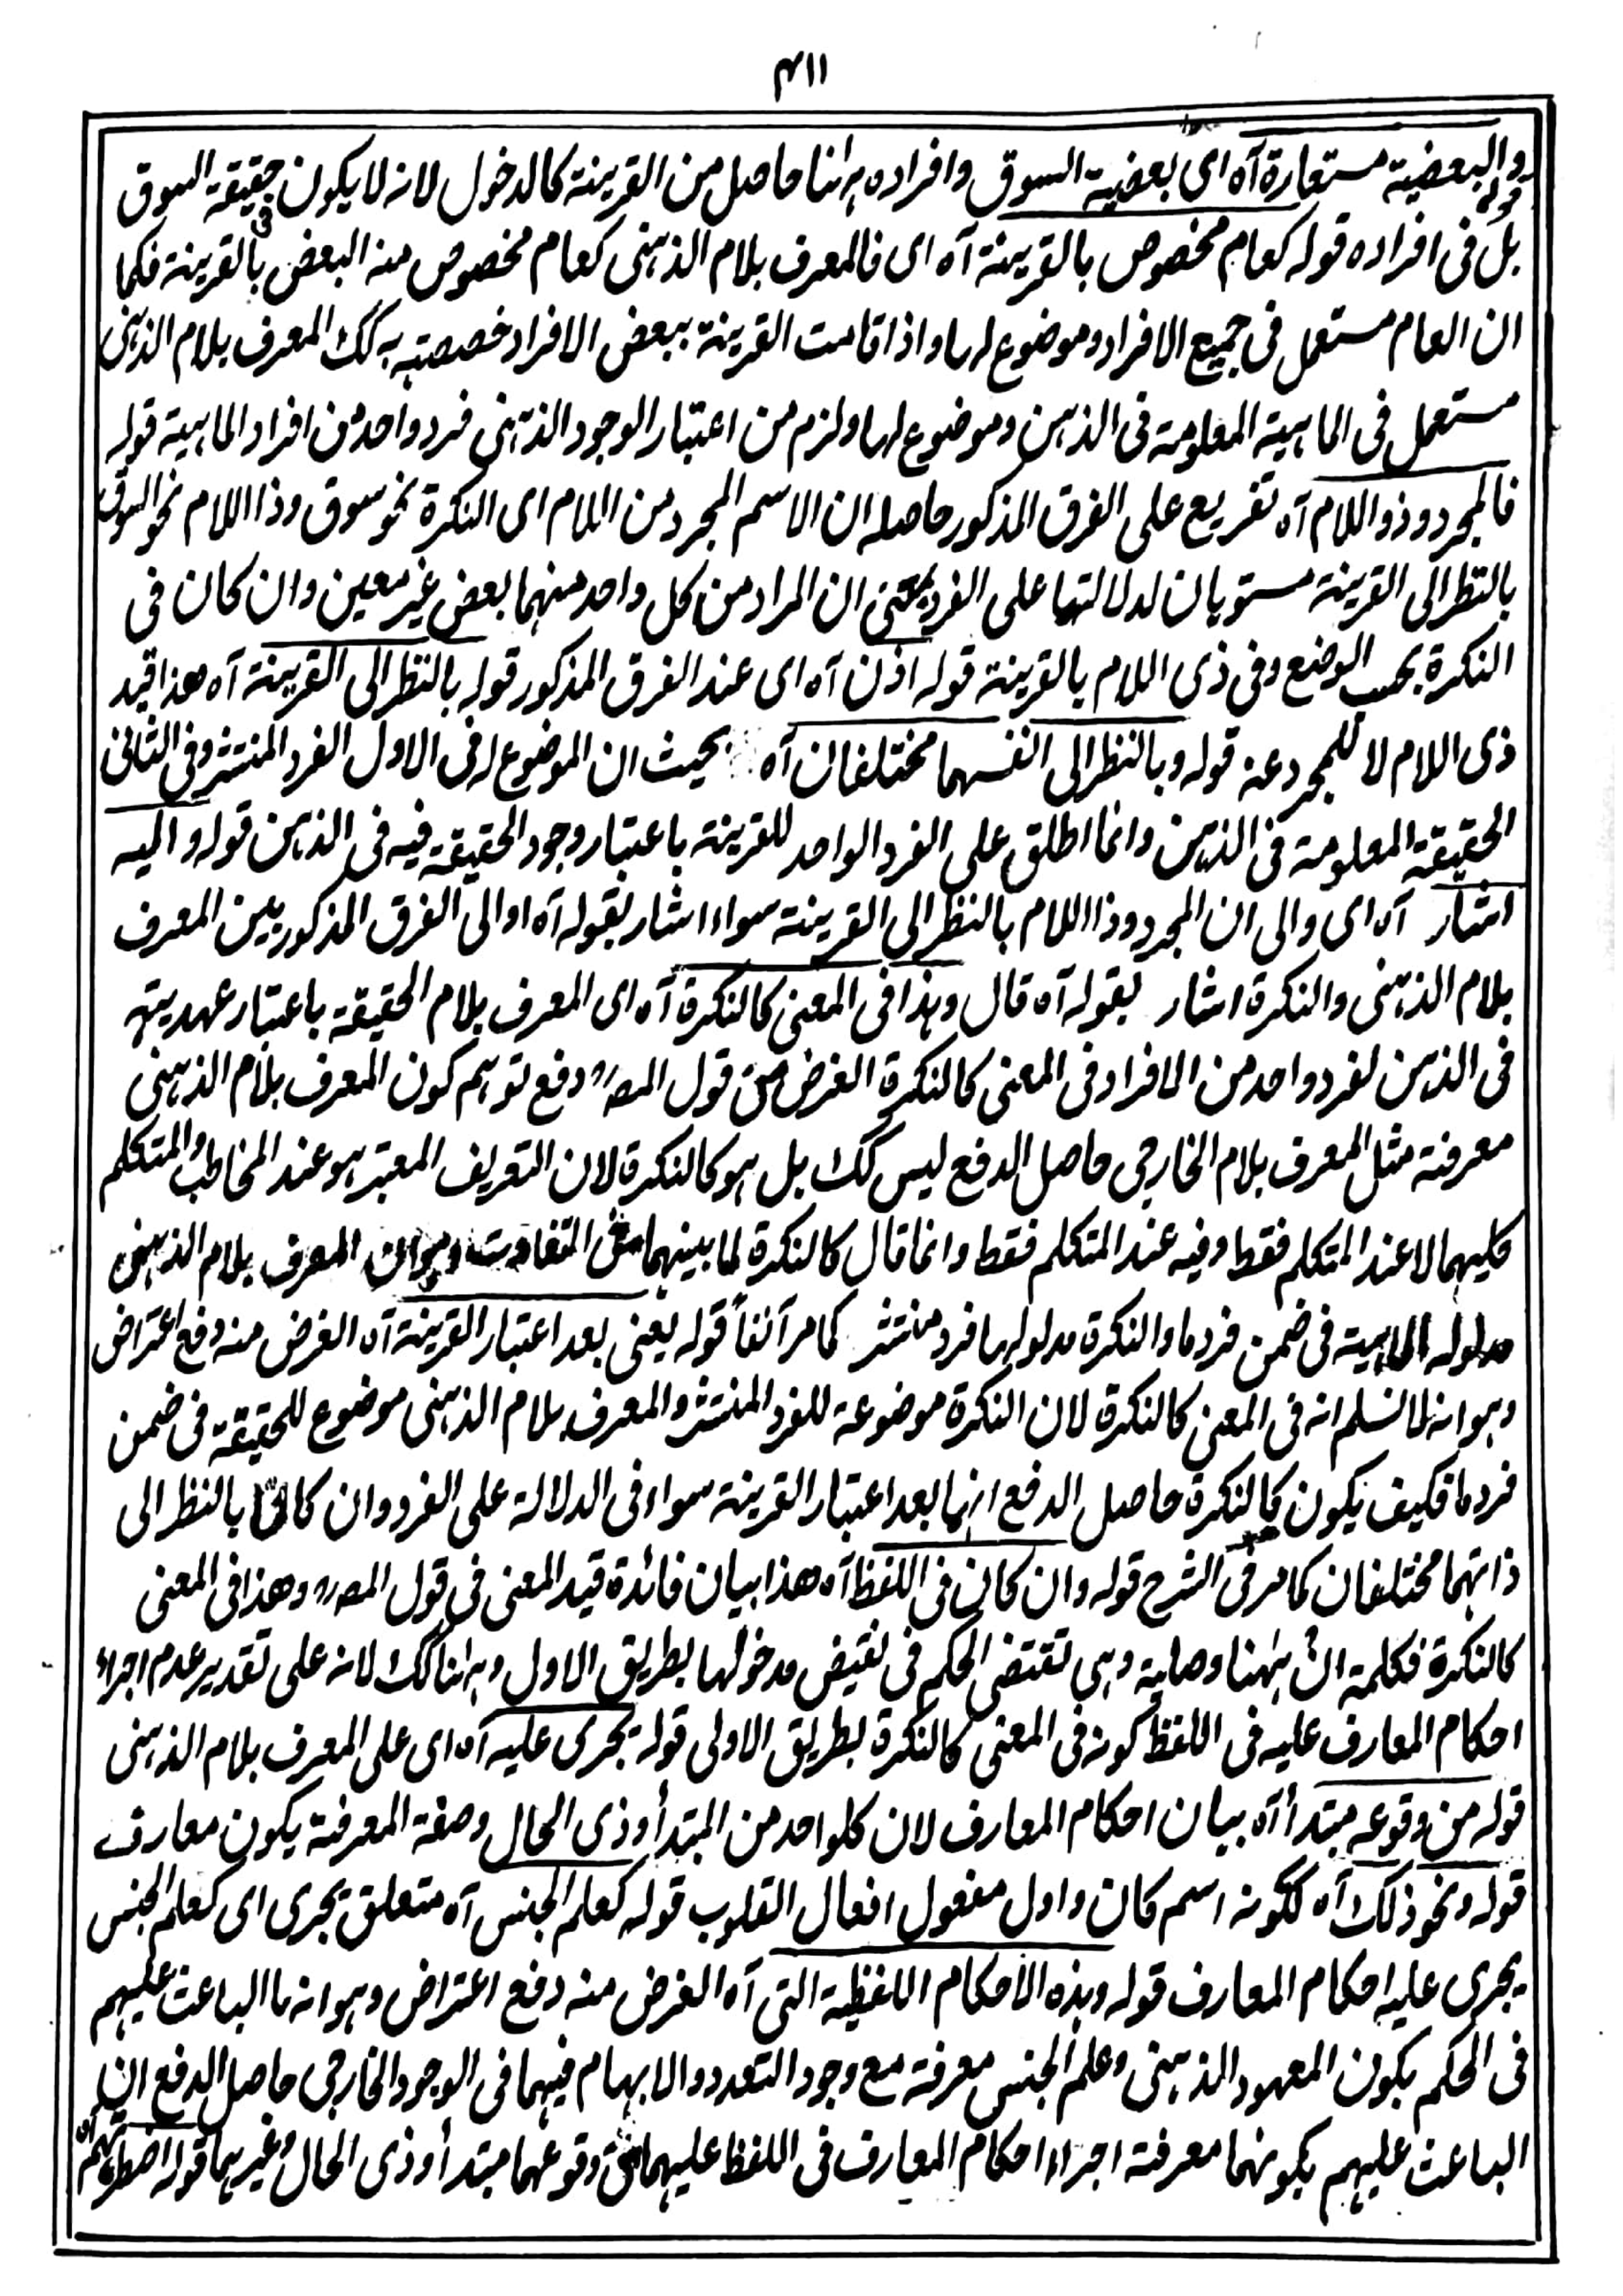 ٣١١
قوله والبعضية مستعارة آه اى بعضية السوق وافراده ہہنا حاصل من القرينة كالدخول لانه لا يكون فى حقيقة السوق
بل فى افراده قوله كعام مخصوص بالقرينة آه اى فالمعرف بلام الذہنى كعام مخصوص منه البعض بالقرينة فكما
ان العام مستعمل فى جميع الافراد وموضوع لہا واذا قامت القرينة ببعض الافراد خصصته به كك المعرف بلام الذہنى
مستعمل فى الماہية المعلومة فى الذہن وموضوع لہا ولزم من اعتبار الوجود الذہنى فرد واحد من افراد الماہية قوله
فالمجرد وذو اللام آه تفريع على الفرق المذكور حاصله ان الاسم المجرد من اللام اى النكرة نحو سوق وذا اللام نحو السوق
بالنظر الى القرينة مستويان لدلالتہا على الفرد يعنى ان المراد من كل واحد منہما بعض غير معين وان كان فى
النكرة بحسب الوضع وفى ذى اللام بالقرينة قوله اذن آه اى عند الفرق المذكور قوله بالنظر الى القرينة آه هذا قيد
ذى اللام لا للمجرد عنه قوله وبالنظر الى انفسہما مختلفان آه بحيث ان الموضوع له فى الاول الفرد المنتشر وفى الثانى
الحقيقة المعلومة فى الذہن وانما اطلق على الفرد الواحد للقرينة باعتبار وجود الحقيقة فيه فى الذہن قوله واليه
اشار آه اى والى ان المجرد وذا اللام بالنظر الى القرينة سواء اشار بقوله آه او الى الفرق المذكور بين المعرف
بلام الذہنى والنكرة اشار بقوله آه قال وہذا فى المعنى كالنكرة آه اى المعرف بلام الحقيقة باعتبار عہديته
فى الذہن لفرد واحد من الافراد فى المعنى كالنكرة الغرض من قول المصرہ دفع توہم كون المعرف بلام الذہنى
معرفة مثل المعرف بلام الخارجى حاصل الدفع ليس كك بل ہو كالنكرة لان التعريف المعتبر ہو عند المخاطب والمتكلم
كليہما لا عند المتكلم فقط وفيه عند المتكلم فقط وانما قال كالنكرة لما بينہما من التفاوت وہوان المعرف بلام الذہنى
مدلوله الماہية فى ضمن فرد ما والنكرة مدلولہا فرد منتشر كما مر آنفاً قوله يعنى بعد اعتبار القرينة آه الغرض منه دفع اعتراض
وہو انه لا نسلم انه فى المعنى كالنكرة لان النكرة موضوعة للفرد المنتشر والمعرف بلام الذہنى موضوع للحقيقة فى ضمن
فرد ما فكيف يكون كالنكرة حاصل الدفع انہما بعد اعتبار القرينة سواء فى الدلالة على الفرد وان كانا بالنظر الى
ذاتہما مختلفان كما مر فى الشرح قوله وان كان فى اللفظ آه هذا بيان فائدة قيد المعنى فى قول المصرہ وهذا فى المعنى
كالنكرة فكلمة ان ہہنا وصلية وہى تقتضى الحكم فى نقيض مدخولہا بطريق الاول وہہنا كك لانه على تقدير عدم اجراء
احكام المعارف عليه فى اللفظ كونه فى المعنى كالنكرة بطريق الاولى قوله يجرى عليه آه اى على المعرف بلام الذہنى
قوله من وقوعه مبتدأ آه بيان احكام المعارف لان كلواحد من المبتدأ وذى الحال وصفة المعرفة يكون معارف
قوله ونحو ذلك آه ككونه اسم كان واول مفعول افعال القلوب قوله كعلم الجنس آه متعلق يجرى اى كعلم الجنس
يجرى عليه احكام المعارف قوله وہذه الاحكام اللفظية التى آه الغرض منه دفع اعتراض وہو انه ما الباعث عليہم
فى الحكم بكون المعہود الذہنى وعلم الجنس معرفة مع وجود التعدد والابہام فيہما فى الوجود الخارجى حاصل الدفع ان
الباعث عليہم بكونہما معرفة اجراء احكام المعارف فى اللفظ عليہما من وقوعہما مبتدأ وذى الحال وغيرہما قوله اضطرتہم آه